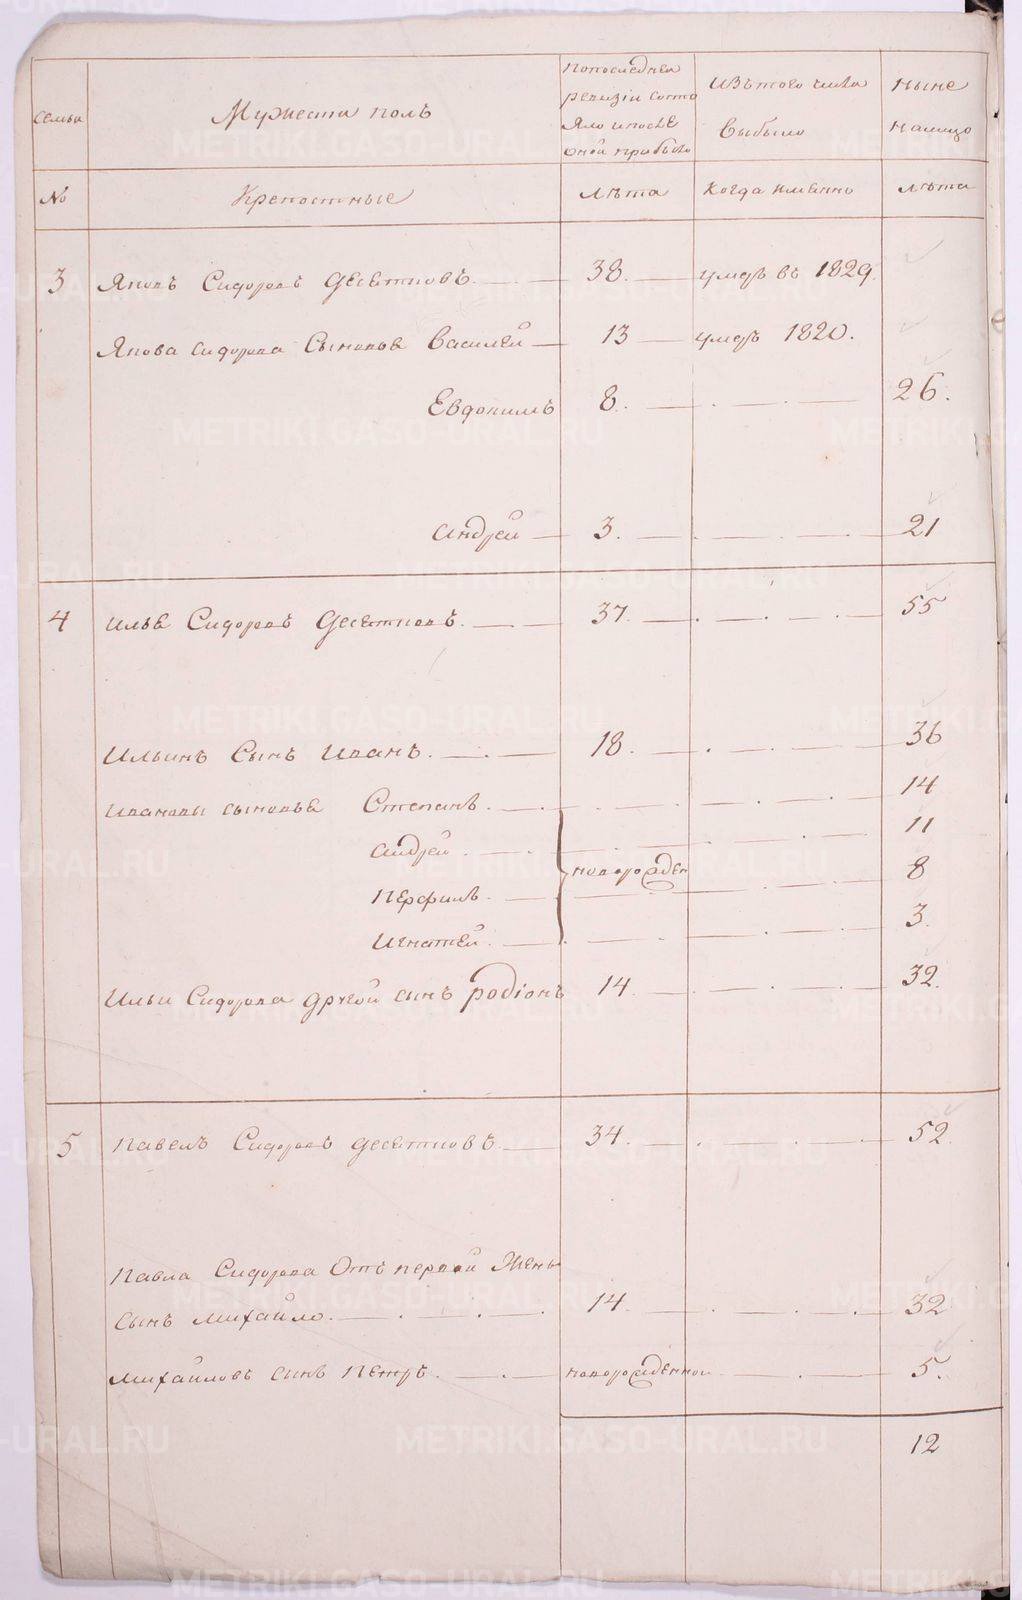 семьи
Мужеска полъ
По последней
ревизіи состо
яло и после
оной прибыло
Изъ того числа
выбыло
Ныне
на лицо
№
Крепостные
Лѣта
Когда имянно
Лѣта
3 Яковъ Сидоровъ Десятковъ. 38. умеръ въ 1829.
Якова Сидорова Сыновья Василей 13 умеръ 1820.
Евдокимъ 8. 26.
Андрей 3. 21
4 Илья Сидоровъ Десятковъ. 37. 55
Ильинъ Сынъ Иванъ. 18. 36
Ивановы сыновья Степанъ. 14
Андрей. 11
новорожден
Перфилъ. 8
Игнатей. 3.
Ильи Сидорова другой сынъ родіонъ 14 32.
5 Павелъ Сидоровъ Десятковъ. 34. 52.
Павла Сидорова Отъ первой Жены
сынъ михайло. 14. 32
михайловъ сынъ Петръ. новорожденной 5.
12
METRIKI.GASO-URAL.RU